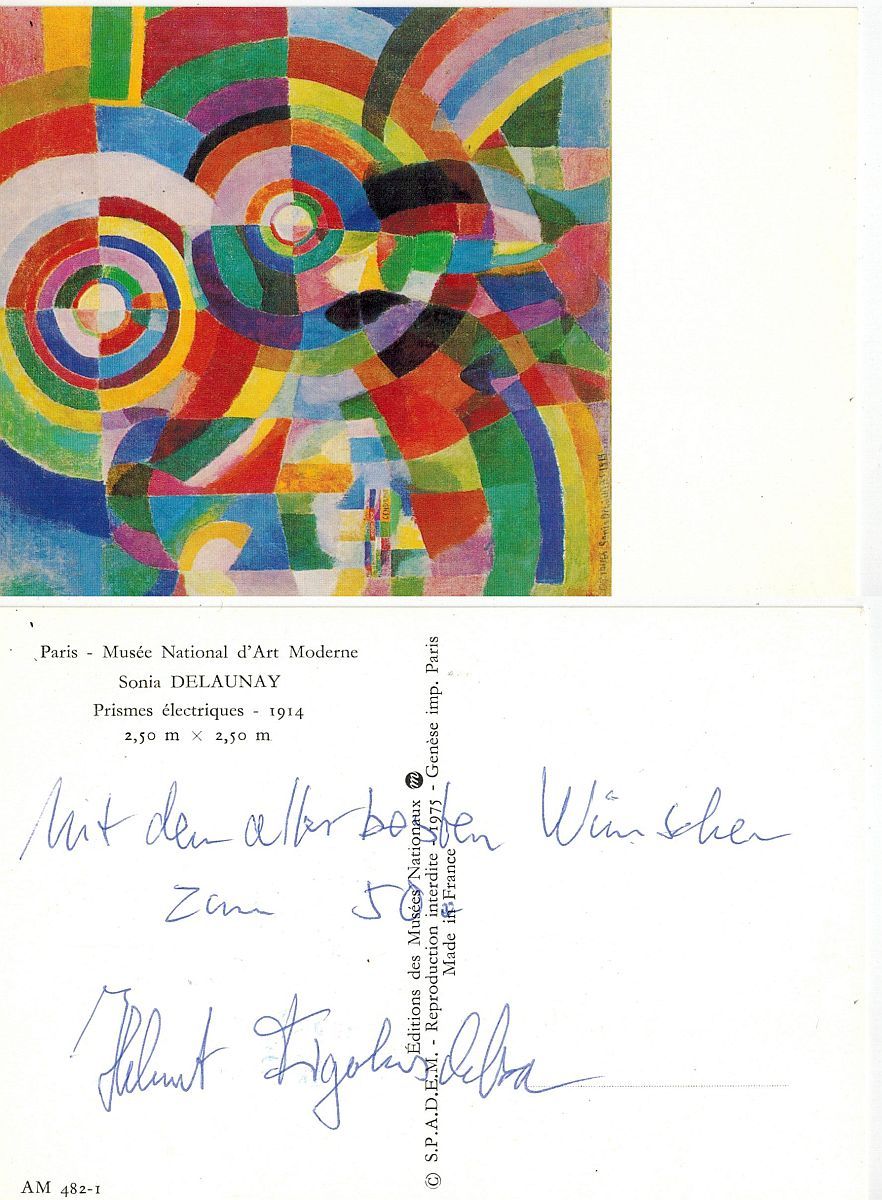 Paris - Musée National d'Art Moderne
Sonia DELAUNAY
Prismes électriques - 1914
2,50 m × 2,50 m
Mit den allerbesten Wünschen
zum 50.
Helmut
Éditions des Musées Nationaux m
© S.P.A.D.E.M. - Reproduction interdite - 1975 - Genèse imp. Paris
Made in France
AM 482-1